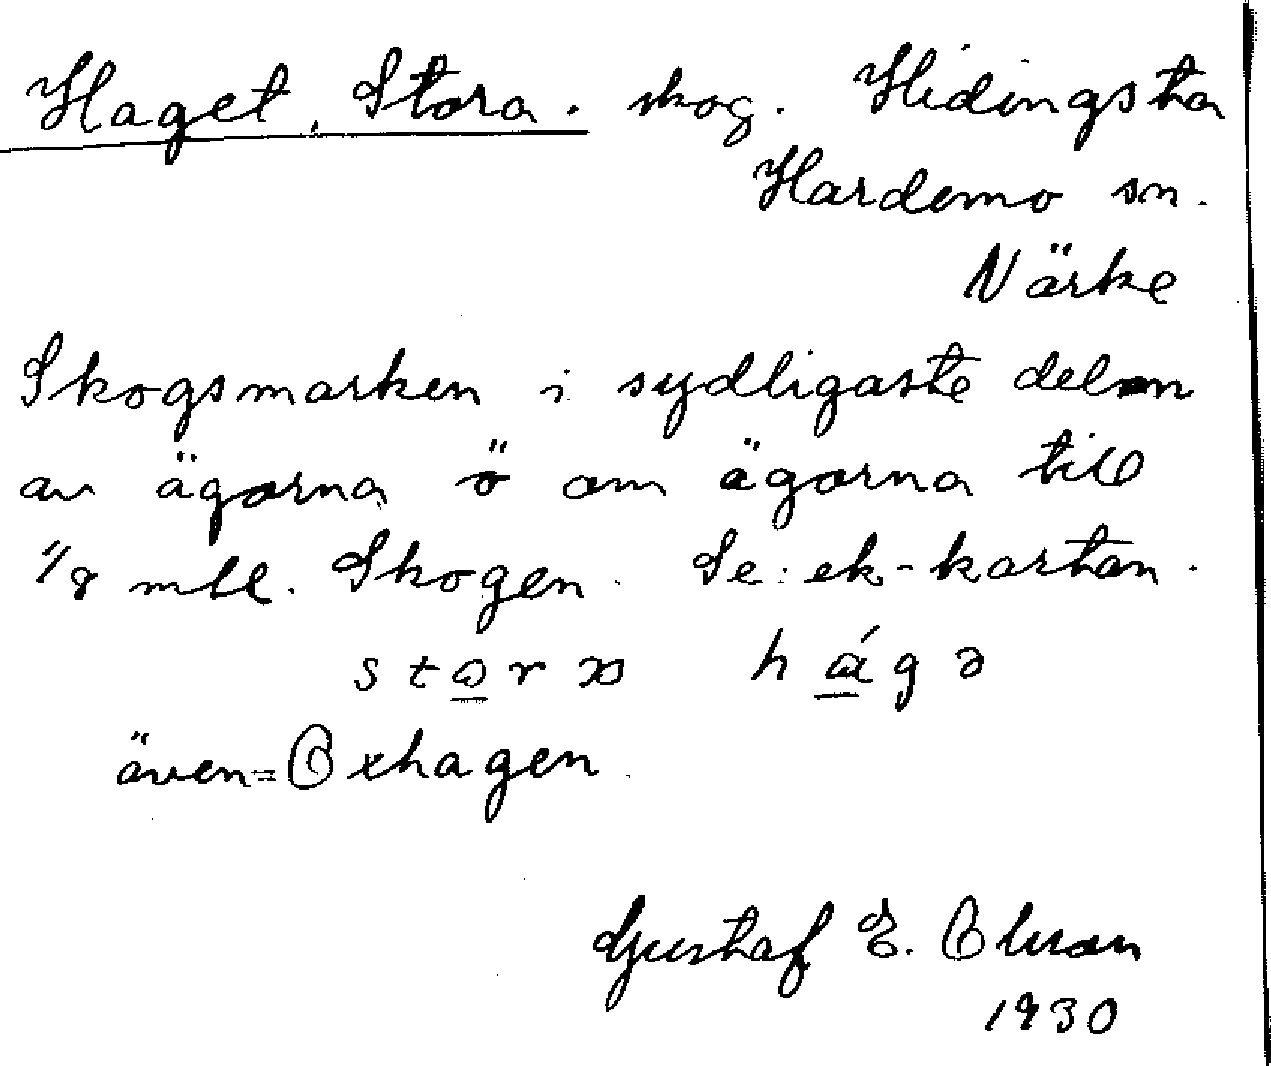 Haget, Stora. skog. Hidingsta
Hardemo sn.
Närke
Skogsmarken i sydligaste delen
av ägorna ö om ägorna till
1/8 mtl. Skogen. Se: ek-kartan.
även = Oxhagen.
Gustaf E.
1930